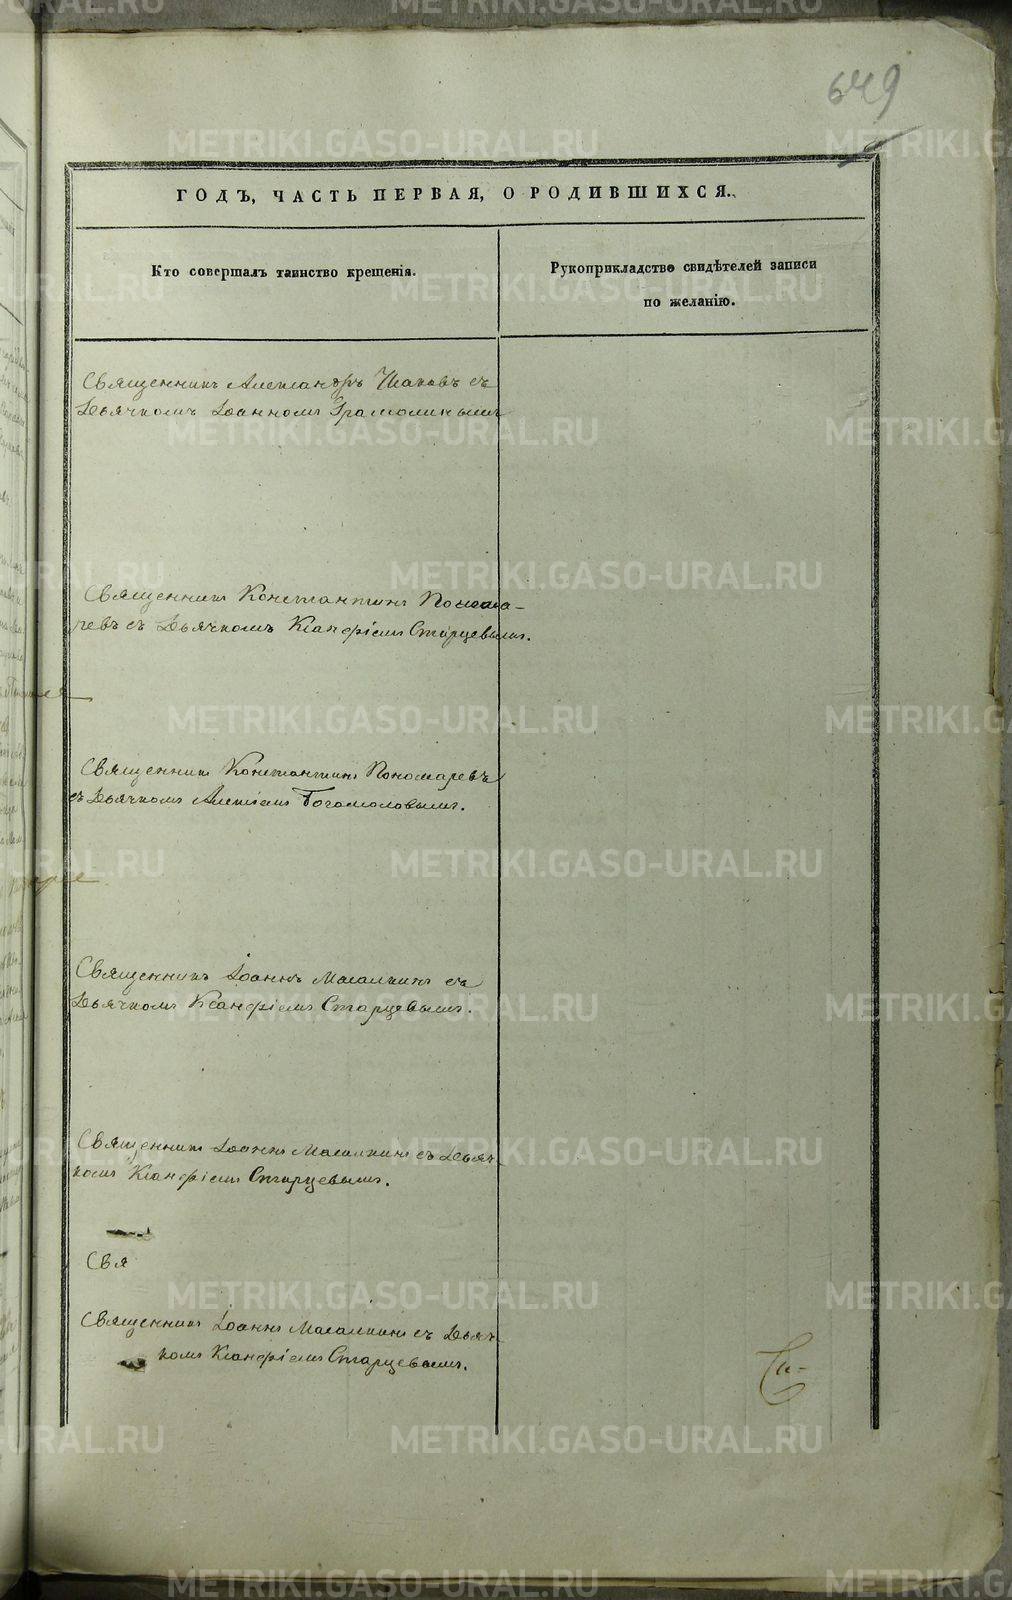 649
ГОДЪ, ЧАСТЬ ПЕРВАЯ, О РОДИВШИХСЯ.
Кто совершалъ таинство крещенія.
Рукоприкладство свидѣтелей записи
по желанію.
Священникъ Александръ съ
Дьячкомъ Іоанномъ Грамолинымъ
Священникъ Константинъ Понома-
ревъ съ Дьячкомъ Ксанфіемъ Старцевымъ.
Священникъ Константинъ Пономаревъ
съ Дьячкомъ Алексіемъ Богомоловымъ.
Священникъ Іоаннъ Масалкинъ съ
Дьячкомъ Ксанфіемъ Старцевымъ.
Священникъ Іоаннъ Масалкинъ съ Дьяч-
комъ Ксанфіемъ Старцевымъ.
Свя
Священникъ Іоаннъ Масалкинъ съ Дьяч-
комъ Ксанфіемъ Старцевымъ.
METRIKI.GASO-URAL.RU